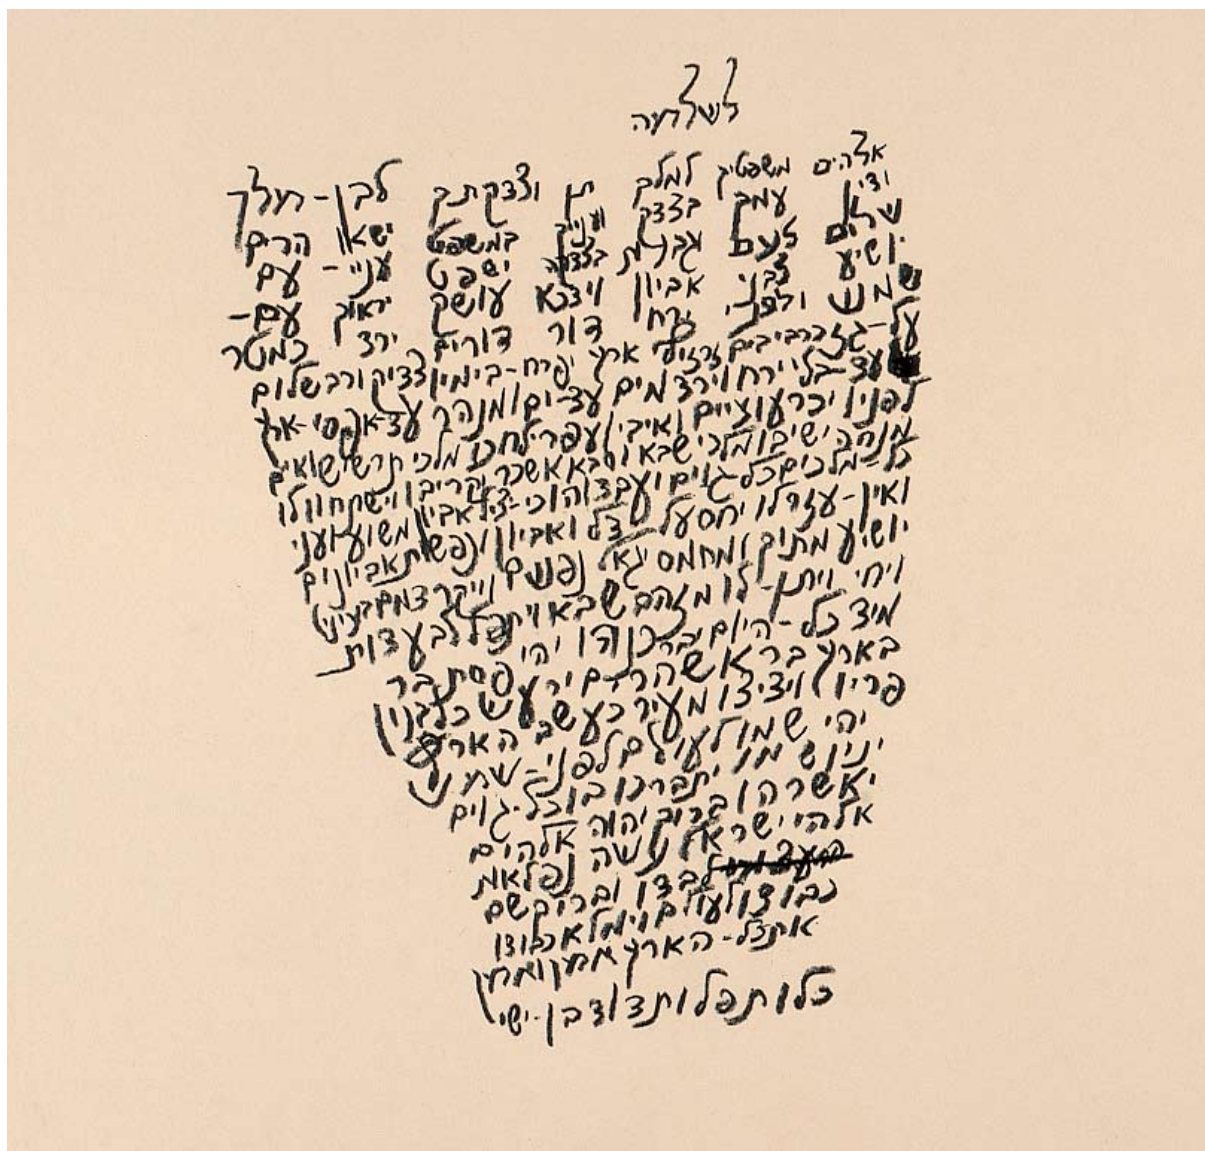 לשלמה
אלהים משפטיך למלך תן וצדקתך לבן-מלך
ידין עמך בצדק ועניך במשפט ישאו הרים
שלום לעם וגבעות בצדקה ישפט עניי-עם
יושיע לבני אביון וידכא עושק יראוך עם-
שמש ולפני ירח דור דורים ירד כמטר
על-גז כרביבים זרזיף ארץ יפרח-בימיו צדיק ורב שלום
עד-בלי ירח וירד מים עד-ים ומנהר עד-אפסי-ארץ
לפניו יכרעו ציים ואיביו עפר ילחכו מלכי תרשיש ואיים
מנחה ישיבו מלכי שבא וסבא אשכר יקריבו וישתחוו לו
כל-מלכים כל-גוים יעבדוהו כי-יציל אביון משוע ועני
ואין-עזר לו יחס על-דל ואביון ונפשות אביונים
יושיע מתוך ומחמס יגאל נפשם וייקר דמם בעיניו
ויחי ויתן-לו מזהב שבא ויתפלל בעדו ת
מיד כל-היום יברכנהו יהי פסת בר
בארץ בראש הרים ירעש כלבנון
פריו ויציצו מעיר כעשב הארץ
יהי שמו לעולם לפני-שמש
ינין שמו ויתברכו בו כל-גוים
יאשרהו ברוך יהוה אלהים
אלהי ישראל עשה נפלאת
לבדו וברוך שם
כבודו לעולם וימלא כבודו
את כל-הארץ אמן ואמן
כלו תפלות דוד בן-ישי